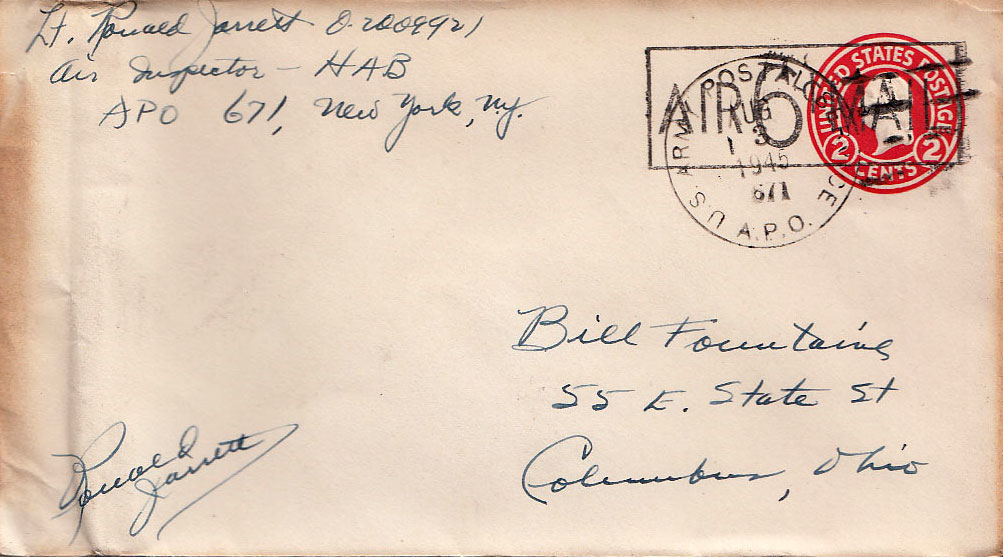 Lt. Ronald Jarrett O-2009921
Air Inspector - HAB
APO 671, New York, N.Y.
AIR 6 MAIL
U.S. ARMY POSTAL SERVICE
AUG
13
1945
671
A.P.O.
UNITED STATES POSTAGE
2 CENTS 2
Bill Fountaine
55 E. State St
Columbus, Ohio
Ronald
Jarrett